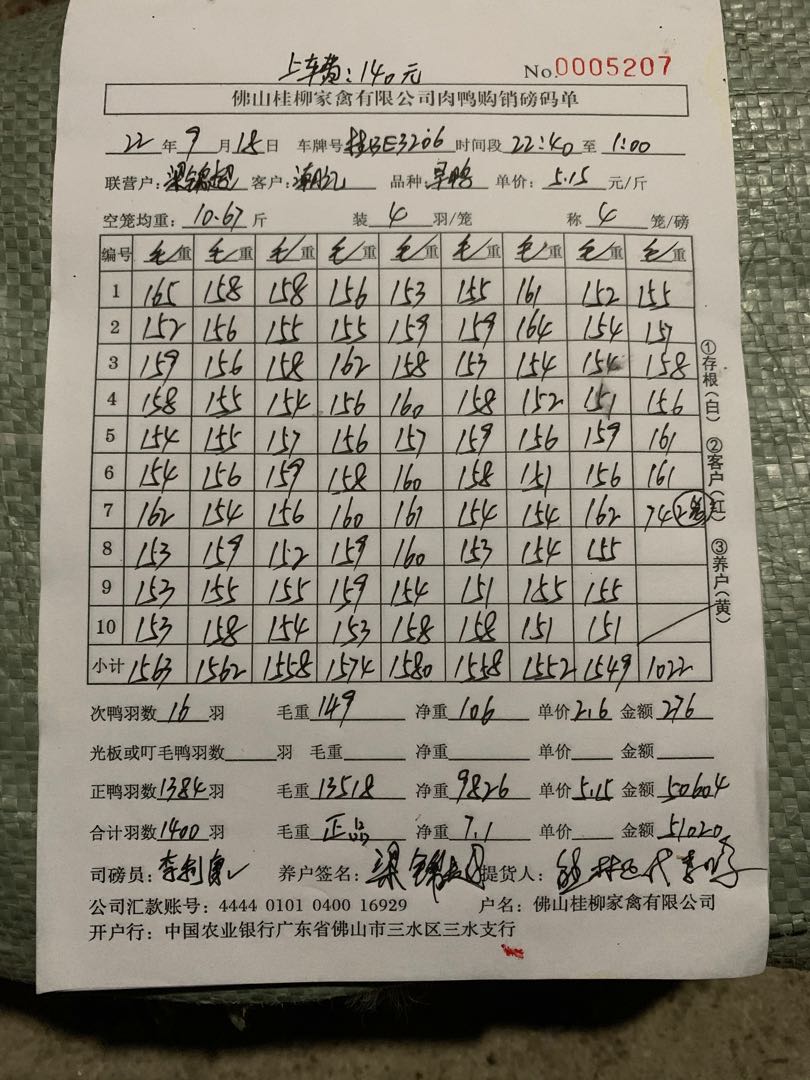 上车费：140元
No.0005207
佛山桂柳家禽有限公司肉鸭购销磅码单
22年9月18日 车牌号桂BE3206时间段22:40至1:00
联营户：梁锦超 客户： 品种：旱鸭 单价：5.15元/斤
空笼均重：10.67斤 装4羽/笼 称4笼/磅
编号 毛/重 毛/重 毛/重 毛/重 毛/重 毛/重 毛/重 毛/重 毛/重
1 165 158 158 156 153 155 161 152 155
2 152 156 155 155 159 159 164 154 157
3 159 156 158 162 158 153 154 154 158
4 158 155 154 156 160 158 152 151 156
5 154 155 157 156 157 159 156 159 161
6 154 156 159 158 160 158 151 156 161
7 162 154 156 160 161 154 154 162 74 2笼
8 153 159 152 159 160 153 154 155
9 153 155 155 159 154 151 155 155
10 153 158 154 153 158 158 151 151
小计 1563 1562 1558 1574 1580 1558 1552 1549 1022
①存根(白) ②客户(红) ③养户(黄)
次鸭羽数16羽 毛重149 净重106 单价2.6 金额276
光板或叮毛鸭羽数 羽 毛重 净重 单价 金额
正鸭羽数1384羽 毛重13518 净重9826 单价5.15 金额50604
合计羽数1400羽 毛重正品 净重7.1 单价 金额51020
司磅员： 养户签名：梁锦超 提货人：
公司汇款账号：4444 0101 0400 16929 户名：佛山桂柳家禽有限公司
开户行：中国农业银行广东省佛山市三水区三水支行